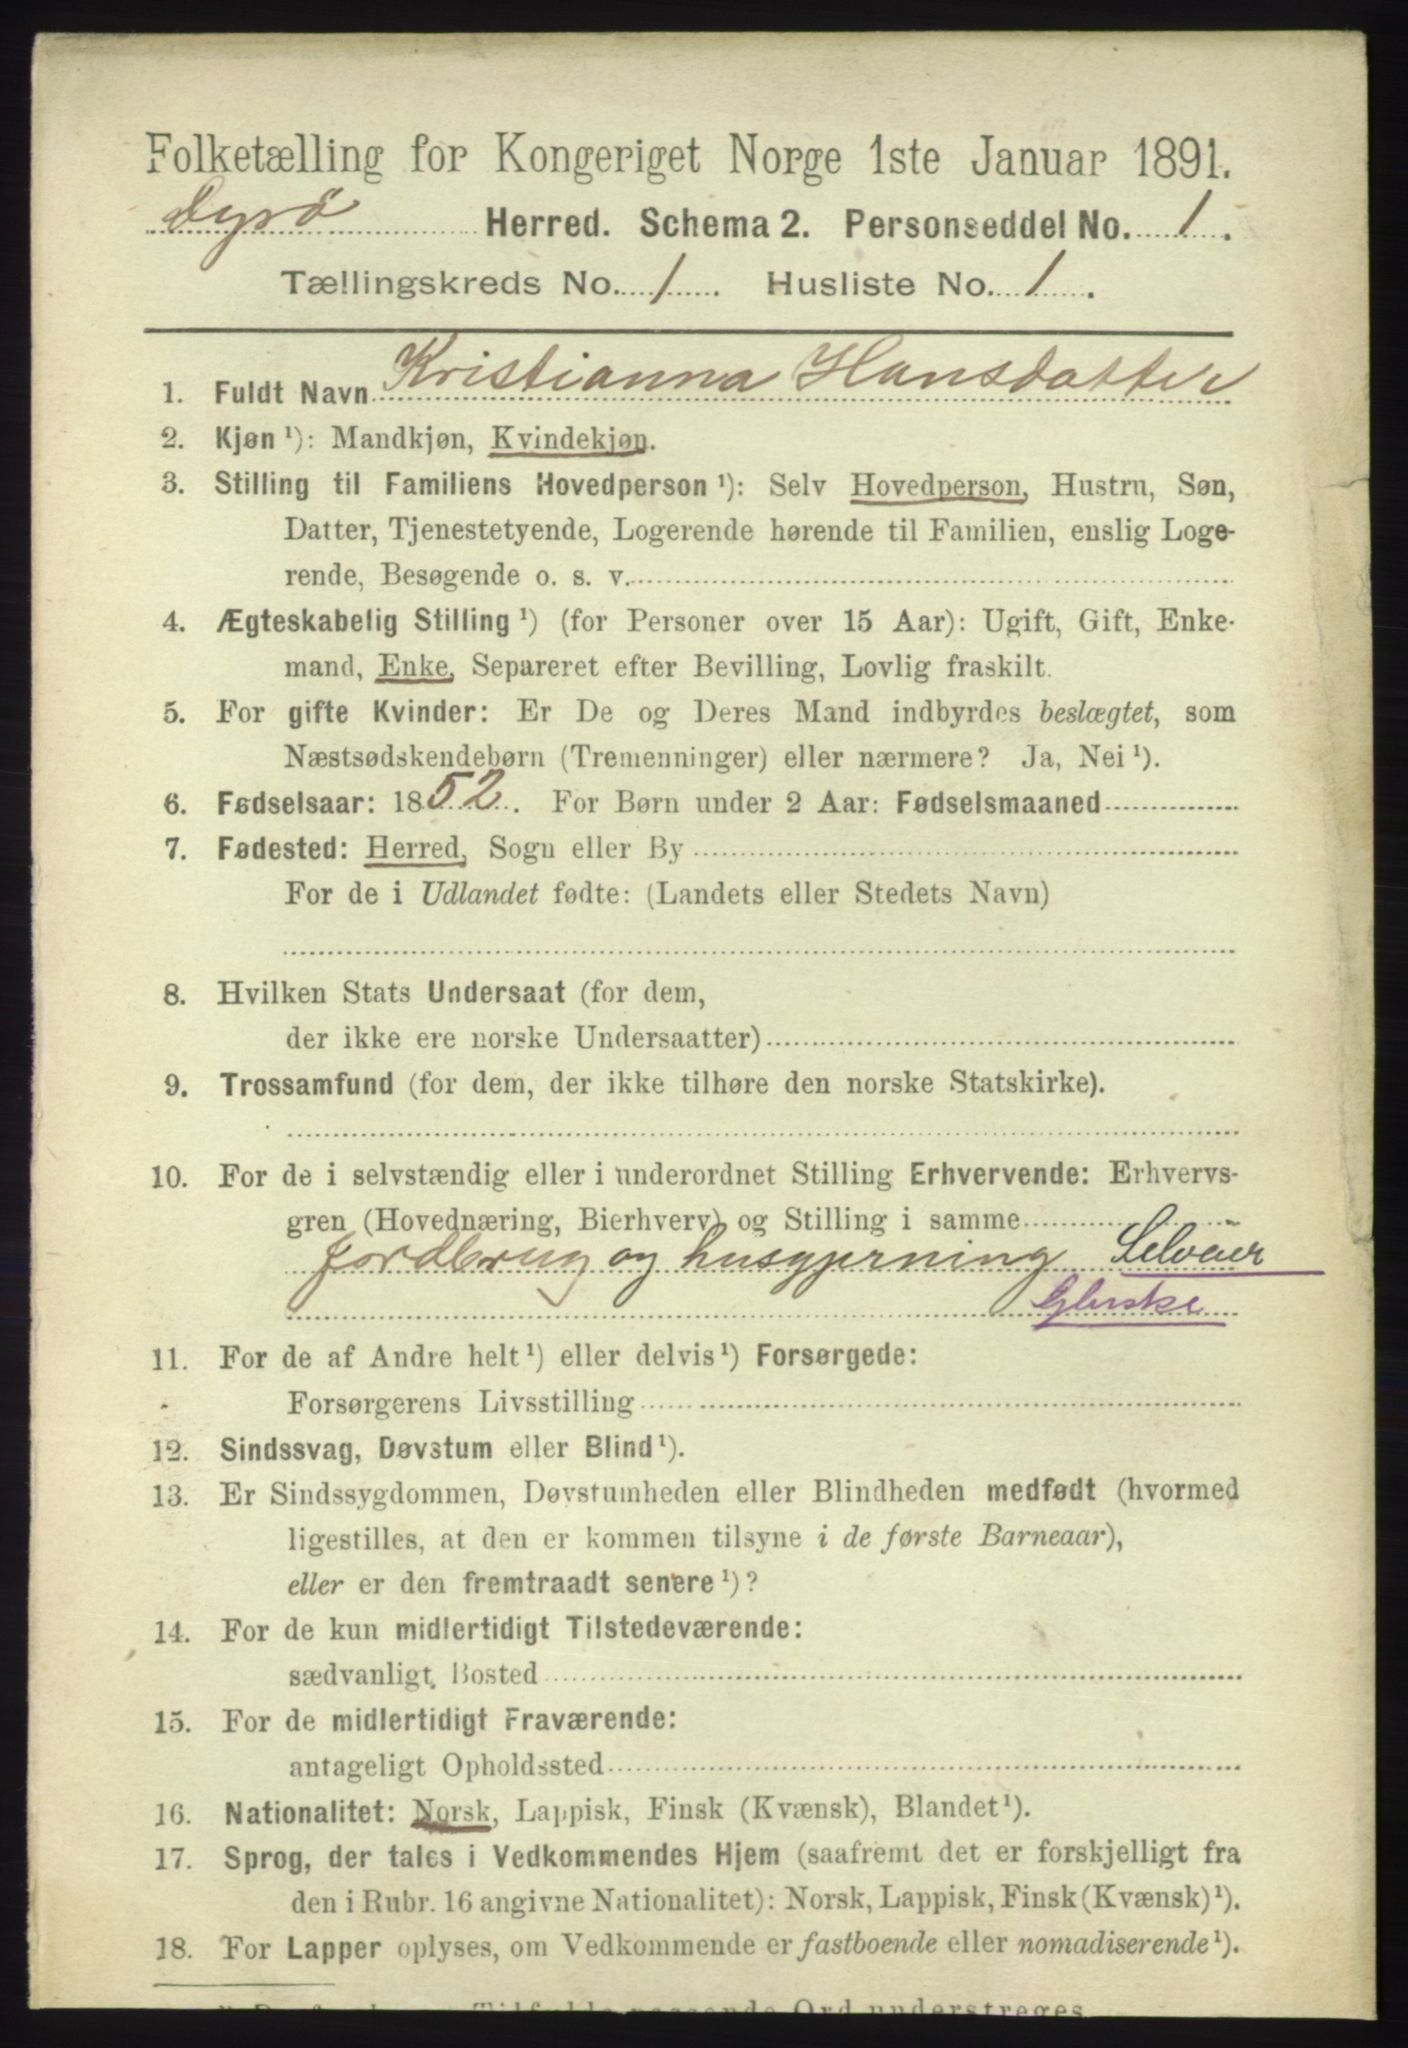 Folketælling for Kongeriget Norge 1ste Januar 1891.
Dyrö Herred. Schema 2. Personseddel No. 1.
Tællingskreds No. 1. Husliste No. 1.
1. Fuldt Navn Kristianna Hansdatter
2. Kjøn ¹): Mandkjøn, Kvindekjøn.
3. Stilling til Familiens Hovedperson ¹): Selv Hovedperson, Hustru, Søn,
Datter, Tjenestetyende, Logerende hørende til Familien, enslig Loge-
rende, Besøgende o. s. v.
4. Ægteskabelig Stilling ¹) (for Personer over 15 Aar): Ugift, Gift, Enke-
mand, Enke, Separeret efter Bevilling, Lovlig fraskilt.
5. For gifte Kvinder: Er De og Deres Mand indbyrdes beslægtet, som
Næstsødskendebørn (Tremenninger) eller nærmere? Ja, Nei ¹).
6. Fødselsaar: 1852. For Børn under 2 Aar: Fødselsmaaned
7. Fødested: Herred, Sogn eller By
For de i Udlandet fødte: (Landets eller Stedets Navn)
8. Hvilken Stats Undersaat (for dem,
der ikke ere norske Undersaatter)
9. Trossamfund (for dem, der ikke tilhøre den norske Statskirke).
10. For de i selvstændig eller i underordnet Stilling Erhvervende: Erhvervs-
gren (Hovednæring, Bierhverv) og Stilling i samme
jordbrug og husgjerning Selveier
11. For de af Andre helt ¹) eller delvis ¹) Forsørgede:
Forsørgerens Livsstilling
12. Sindssvag, Døvstum eller Blind ¹).
13. Er Sindssygdommen, Døvstumheden eller Blindheden medfødt (hvormed
ligestilles, at den er kommen tilsyne i de første Barneaar),
eller er den fremtraadt senere ¹)?
14. For de kun midlertidigt Tilstedeværende:
sædvanligt Bosted
15. For de midlertidigt Fraværende:
antageligt Opholdssted
16. Nationalitet: Norsk, Lappisk, Finsk (Kvænsk), Blandet ¹).
17. Sprog, der tales i Vedkommendes Hjem (saafremt det er forskjelligt fra
den i Rubr. 16 angivne Nationalitet): Norsk, Lappisk, Finsk (Kvænsk) ¹).
18. For Lapper oplyses, om Vedkommende er fastboende eller nomadiserende ¹).
Ord understreges.